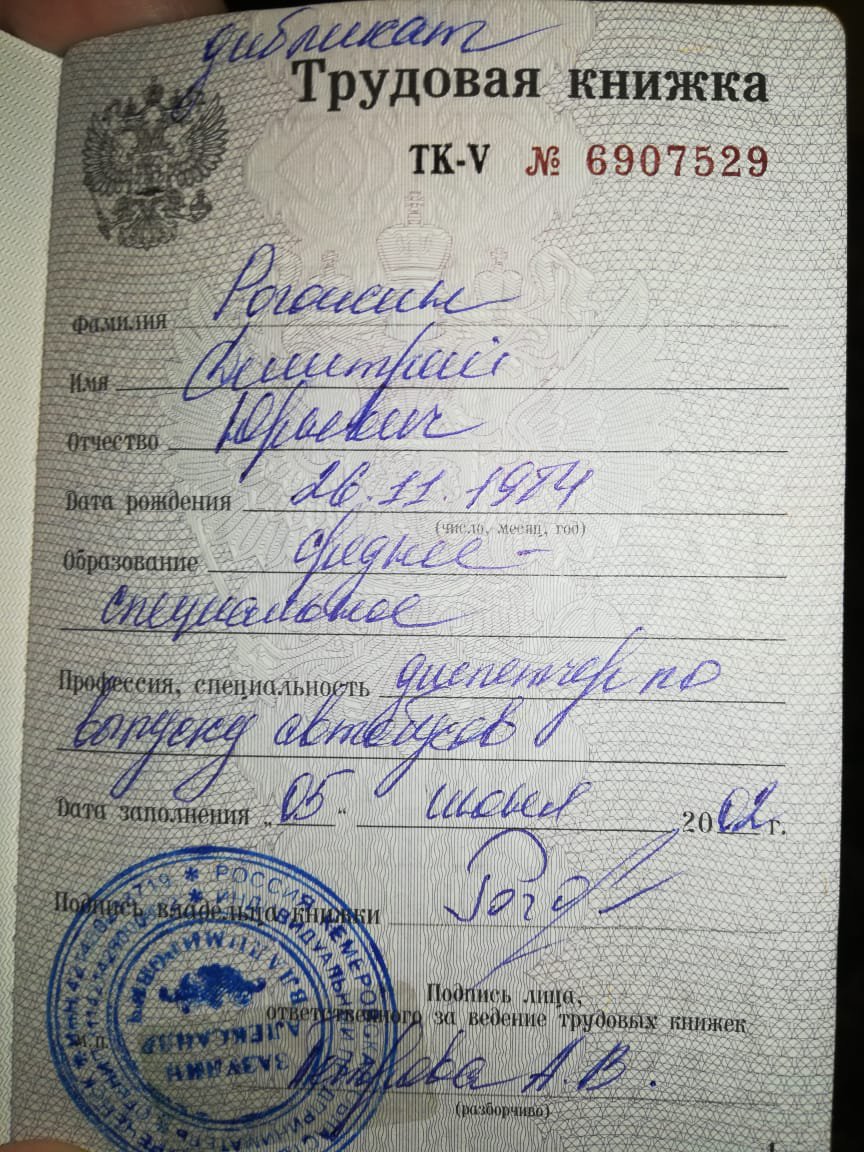 дубликат
Трудовая книжка
ТК-V № 6907529
Фамилия
Имя Димитрий
Отчество Юрьевич
Дата рождения 26.11.1974
(число, месяц, год)
Образование среднее -
специальное
Профессия, специальность диспетчер по
выпуску автобусов
Дата заполнения „05“ июня 2002 г.
Подпись владельца книжки
Подпись лица,
ответственного за ведение трудовых книжек
М.П.
А.В.
(разборчиво)
РОССИЯ * КЕМЕРОВСКАЯ
ИНДИВИДУАЛЬНЫЙ ПРЕДПРИНИМАТЕЛЬ
ЗАЗУЛИН
АЛЕКСАНДР
ВЛАДИМИРОВИЧ